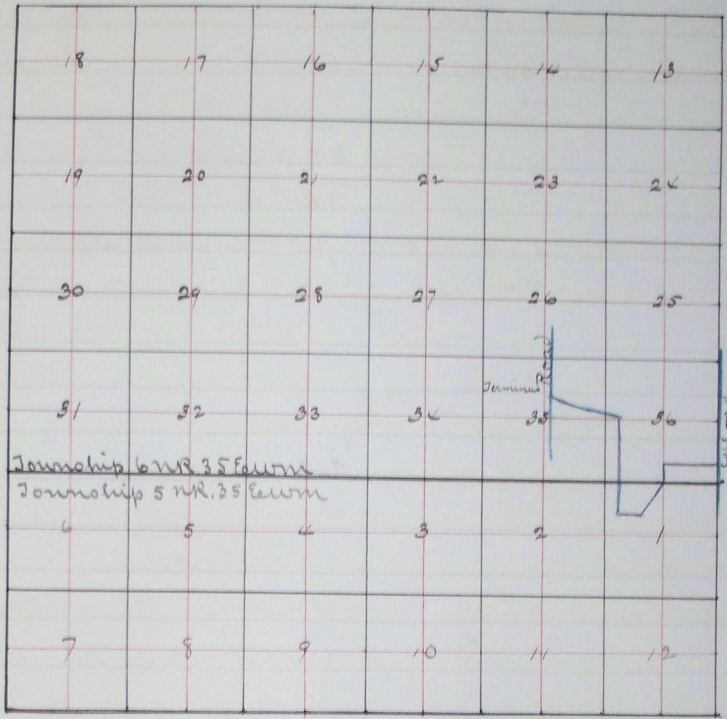 18 17 16 15 14 13
19 20 21 22 23 24
30 29 28 27 26 25
Road
Terminus
31 32 33 34 35 36
Township 6 N R. 35 E W M
Township 5 N R. 35 E W M
6 5 4 3 2 1
7 8 9 10 11 12